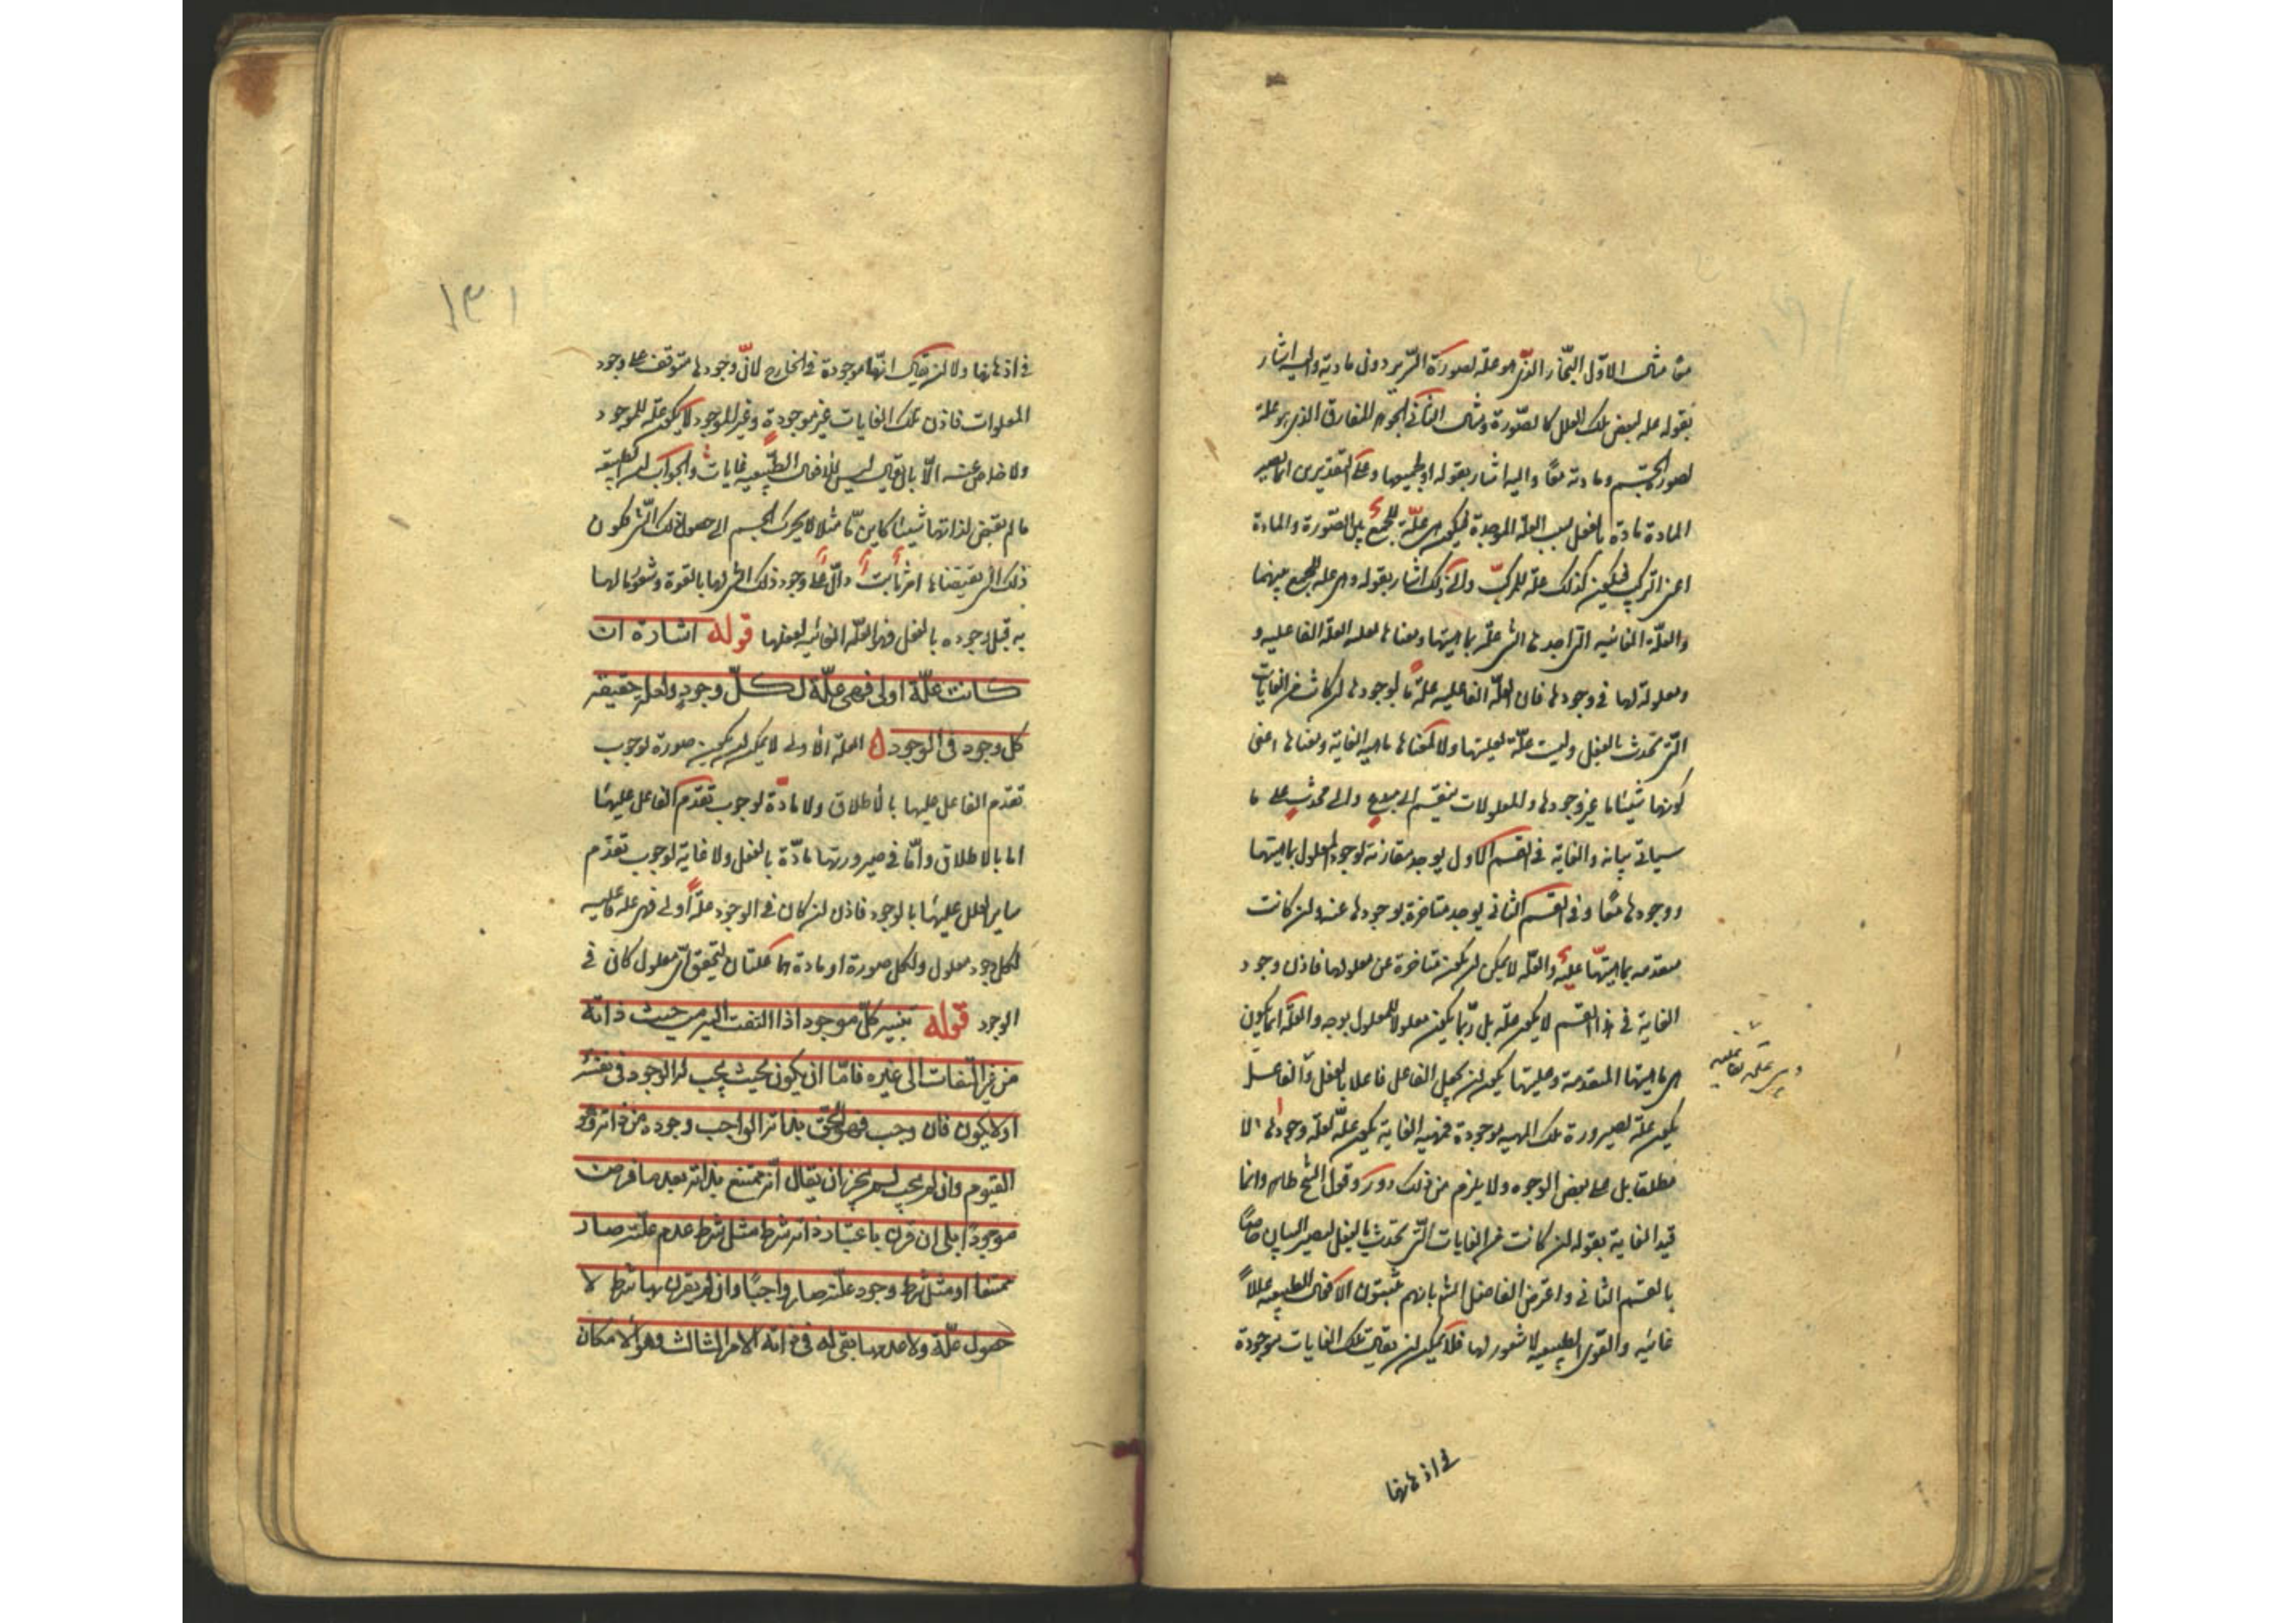 معًا مثال الاوّل النجّار الذى هو علّة لصورة السّرير دون مادته واليه اشار
بقوله علة لبعض تلك العلل كالصّورة ومثال الثانى الجوهر المفارق الذى هو علة
لصورة الجسم ومادته معًا واليه اشار بقوله او لجميعها وعلى التقديرين انما يصير
المادة مادة بالفعل بسبب العلة الموجدة فيكون هى علّة للجمع بين الصّورة والمادة
اعنى التركيب فيكون كذلك علة للمركّب والى ذلك اشار بقوله وهى علة للجمع بينهما
والعلّة الغائيه التى لاجلها الشى علّة بماهيتها ومعناها لعلية العلة الفاعلية و
ومعلولة لها فى وجودها فان العلّة الفاعليه علةٌ ما لوجودها ان كانت من الغايات
التى تحدث بالفعل وليست علّة لعليتها ولا لمعناها ماهية الغاية ومعناها اعنى
كونها شيئا ما غير وجودها والمعلولات ينقسم الى مبدع والى محدث على ما
سياتى بيانه والغاية فى القسم الاول يوجد مقارنة لوجود المعلول بماهيتها
ووجودها معًا وفى القسم الثانى يوجد متاخرة بوجودها عنه وان كانت
متقدمه بماهيتها عليه والعلّه لا يمكن ان يكون متاخرة عن معلولها فاذن وجود
الغاية فى هذا القسم لا يكون علّة بل ربّما يكون معلولا للمعلول بوجه والعلّة انما يكون
هى ماهيتها المتقدمة وعليتها يكون لان يجعل الفاعل فاعلا بالفعل والفاعل
يكون علة لصيرورة تلك الماهيه موجودة فماهيه الغاية يكون علّة لعلّة وجودها لا
مطلقا بل على بعض الوجوه ولا يلزم من ذلك دور وقول الشيخ ظاهر وانما
قيد الغاية بقوله ان كانت من الغايات التى تحدث بالفعل ليصير البيان خاصًّا
بالقسم الثانى واعترض الفاضل الشارح بانهم يثبتون للافعال الطبيعيه عللاً
غائيه والقوى الطبيعيه لا شعور لها فلا يمكن ان يقال تلك الغايات موجودة
فى اذهانها
فى اذهانها ولا ان يقال انها موجودة فى الخارج لانّ وجودها متوقف على وجود
المعلولات فاذن تلك الغايات غير موجودة وغير الموجود لا يكون علّة للموجود
ولا خلاص عنه الّا بان يقال ليس للافعال الطبيعيه غايات والجواب ان الطبيعة
ما لم يقتض لذاتها شيئا كاين مّا مثلا لا يحرك الجسم الى حصول ذلك الشى فكون
ذلك الشى مقتضاها امر ثابت دالّ على وجود ذلك الشى لها بالقوة وشعور ما لها
به قبل وجوده بالفعل فهو العلّة الغائيه لفعلها قوله اشارة ان
كانت علّة اولى فهى علّة لكلّ وجود ولعلة حقيقة
كل وجود فى الوجود ه العلّة الاولى لا يمكن ان يكون صورة لوجوب
تقدّم الفاعل عليها بالاطلاق ولا مادّة لوجوب تقدّم الفاعل عليها
اما بالاطلاق وامّا فى صيرورتها مادّة بالفعل ولا غاية لوجوب تقدّم
ساير العلل عليها بالوجود فاذن ان كان فى الوجود علّة اولى فهى علة فاعليه
لكل وجود معلول ولكل صورة او مادة هما علتان لتحقق اى معلول كان فى
الوجود قوله تنبيه كلّ موجود اذا التفت اليه من حيث ذاته
من غير التفات الى غيره فامّا ان يكون بحيث يجب له الوجود فى نفسه
او لا يكون فان وجب فهو الحق بذاته الواجب وجوده من ذاته وهو
القيوم وان لم يجب لم يجز ان يقال انه ممتنع بذاته بعد ما فرض
موجودًا بلى ان قرن باعتبار ذاته شرط مثل شرط عدم علّته صار
ممتنعا او مثل شرط وجود علّته صار واجبًا وان لم يقرن بها شرط لا
حصول علّة ولا عدمها بقى له فى ذاته الامر الثالث وهو الامكان